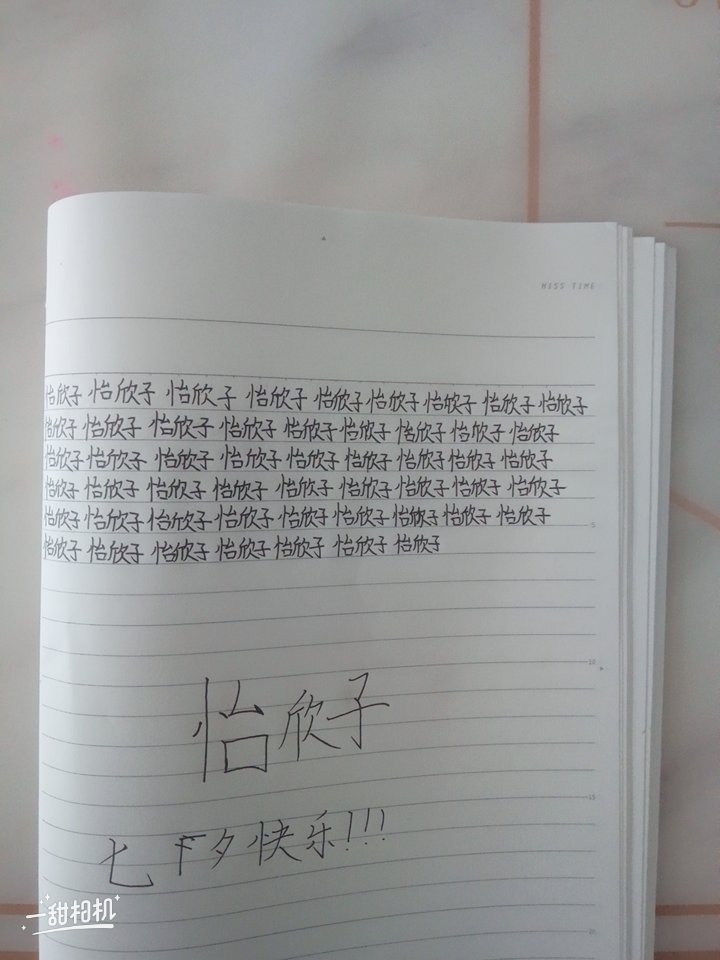 MISS TIME
怡欣子 怡欣子 怡欣子 怡欣子 怡欣子 怡欣子 怡欣子 怡欣子 怡欣子
怡欣子 怡欣子 怡欣子 怡欣子 怡欣子 怡欣子 怡欣子 怡欣子 怡欣子
怡欣子 怡欣子 怡欣子 怡欣子 怡欣子 怡欣子 怡欣子 怡欣子 怡欣子
怡欣子 怡欣子 怡欣子 怡欣子 怡欣子 怡欣子 怡欣子 怡欣子 怡欣子
怡欣子 怡欣子 怡欣子 怡欣子 怡欣子 怡欣子 怡欣子 怡欣子 怡欣子
5
怡欣子 怡欣子 怡欣子 怡欣子 怡欣子 怡欣子 怡欣子
10
怡欣子
15
七 夕快乐!!!
一甜相机
20